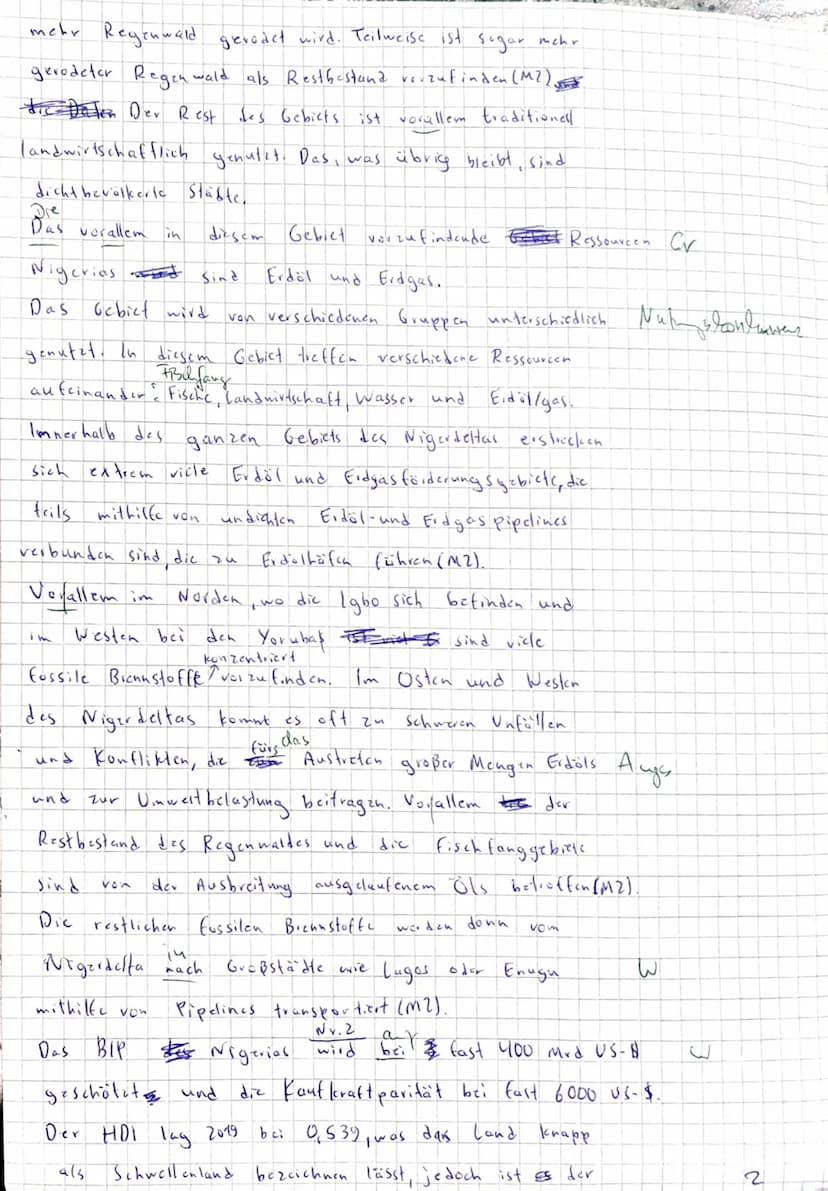 mehr Regenwald gerodet wird. Teilweise ist sogar mehr
gerodeter Regenwald als Restbestand vorzufinden (M2)
Der Rest des Gebiets ist vorallem traditionell
landwirtschaftlich genutzt. Das, was übrig bleibt, sind
dichtbevölkerte Städte.
Die
Das vorallem in diesem Gebiet vorzufindende Ressourcen Gr
Nigerias sind Erdöl und Erdgas.
Das Gebiet wird von verschiedenen Gruppen unterschiedlich Nutzungskonkurrenz
genutzt. In diesem Gebiet treffen verschiedene Ressourcen
aufeinander: Fische, Landwirtschaft, Wasser und Erdöl/gas.
Innerhalb des ganzen Gebiets des Nigerdeltas erstrecken
sich extrem viele Erdöl und Erdgasförderungsgebiete, die
teils mithilfe von undichten Erdöl- und Erdgaspipelines
verbunden sind, die zu Erdölhäfen führen (M2).
Vorallem im Norden, wo die Igbo sich befinden und
im Westen bei den Yorubas sind viele
konzentriert
fossile Brennstoffe vorzufinden. Im Osten und Westen
des Nigerdeltas kommt es oft zu schweren Unfällen
fürs das
und Konflikten, die Austreten großer Mengen Erdöls
und zur Umweltbelastung beitragen. Vorallem der
Restbestand des Regenwaldes und die Fischfanggebiete
sind von der Ausbreitung ausgelaufenem Öls betroffen (M2).
Die restlichen fossilen Brennstoffe werden dann vom
in
Nigerdelta nach Großstädte wie Lagos oder Enugu W
mithilfe von Pipelines transportiert (M2).
Nr. 2 auf
Das BIP Nigerias wird bei fast 400 Mrd US-$ W
geschätzt und die Kaufkraftparität bei fast 6000 US-$.
Der HDI lag 2019 bei 0,539, was das Land knapp
als Schwellenland bezeichnen lässt, jedoch ist der
2